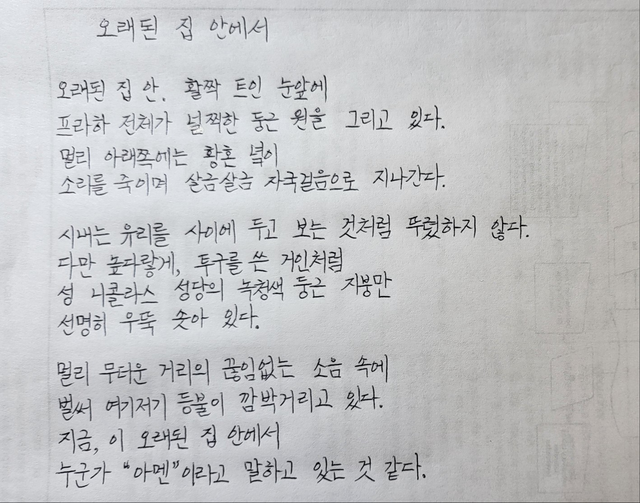 오래된 집 안에서
오래된 집 안, 활짝 트인 눈앞에
프라하 전체가 널찍한 둥근 원을 그리고 있다.
멀리 아래쪽에는 황혼 녘이
소리를 죽이며 살금살금 자국걸음으로 지나간다.
시내는 유리를 사이에 두고 보는 것처럼 뚜렷하지 않다.
다만 높다랗게, 투구를 쓴 거인처럼
성 니콜라스 성당의 녹청색 둥근 지붕만
선명히 우뚝 솟아 있다.
멀리 무더운 거리의 끊임없는 소음 속에
벌써 여기저기 등불이 깜박거리고 있다.
지금, 이 오래된 집 안에서
누군가 "아멘"이라고 말하고 있는 것 같다.